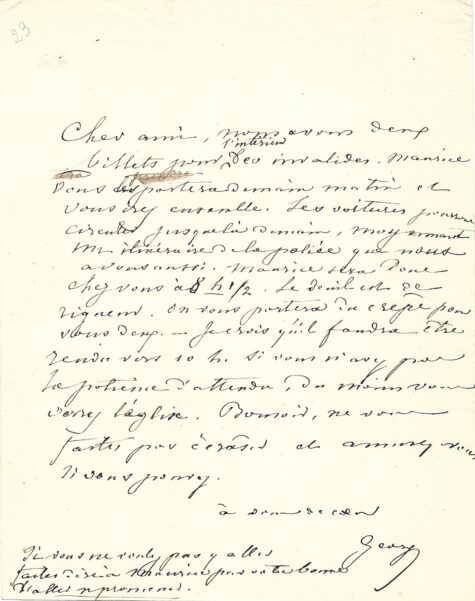 23
Cher ami, nous avons deux
billets pour l'intérieur des invalides. Maurice
vous les portera demain matin et
vous irez ensemble. Les voitures pourront
circuler jusque là demain, moyennant
un itinéraire de la police que nous
avons aussi. Maurice sera donc
chez vous à 8 h 1/2. Le deuil est de
rigueur. On vous portera du crêpe pour
vous deux. — Je crois qu'il faudra être
rendu vers 10 h. Si vous n'avez pas
la patience d'attendre, du moins vous
verrez l'église. Bonsoir, ne vous
faites pas écraser et amusez vous
si vous pouvez.
à vous de cœur
George
Si vous ne voulez pas y aller
faites dire à Maurice par votre bonne
d'aller se promener.